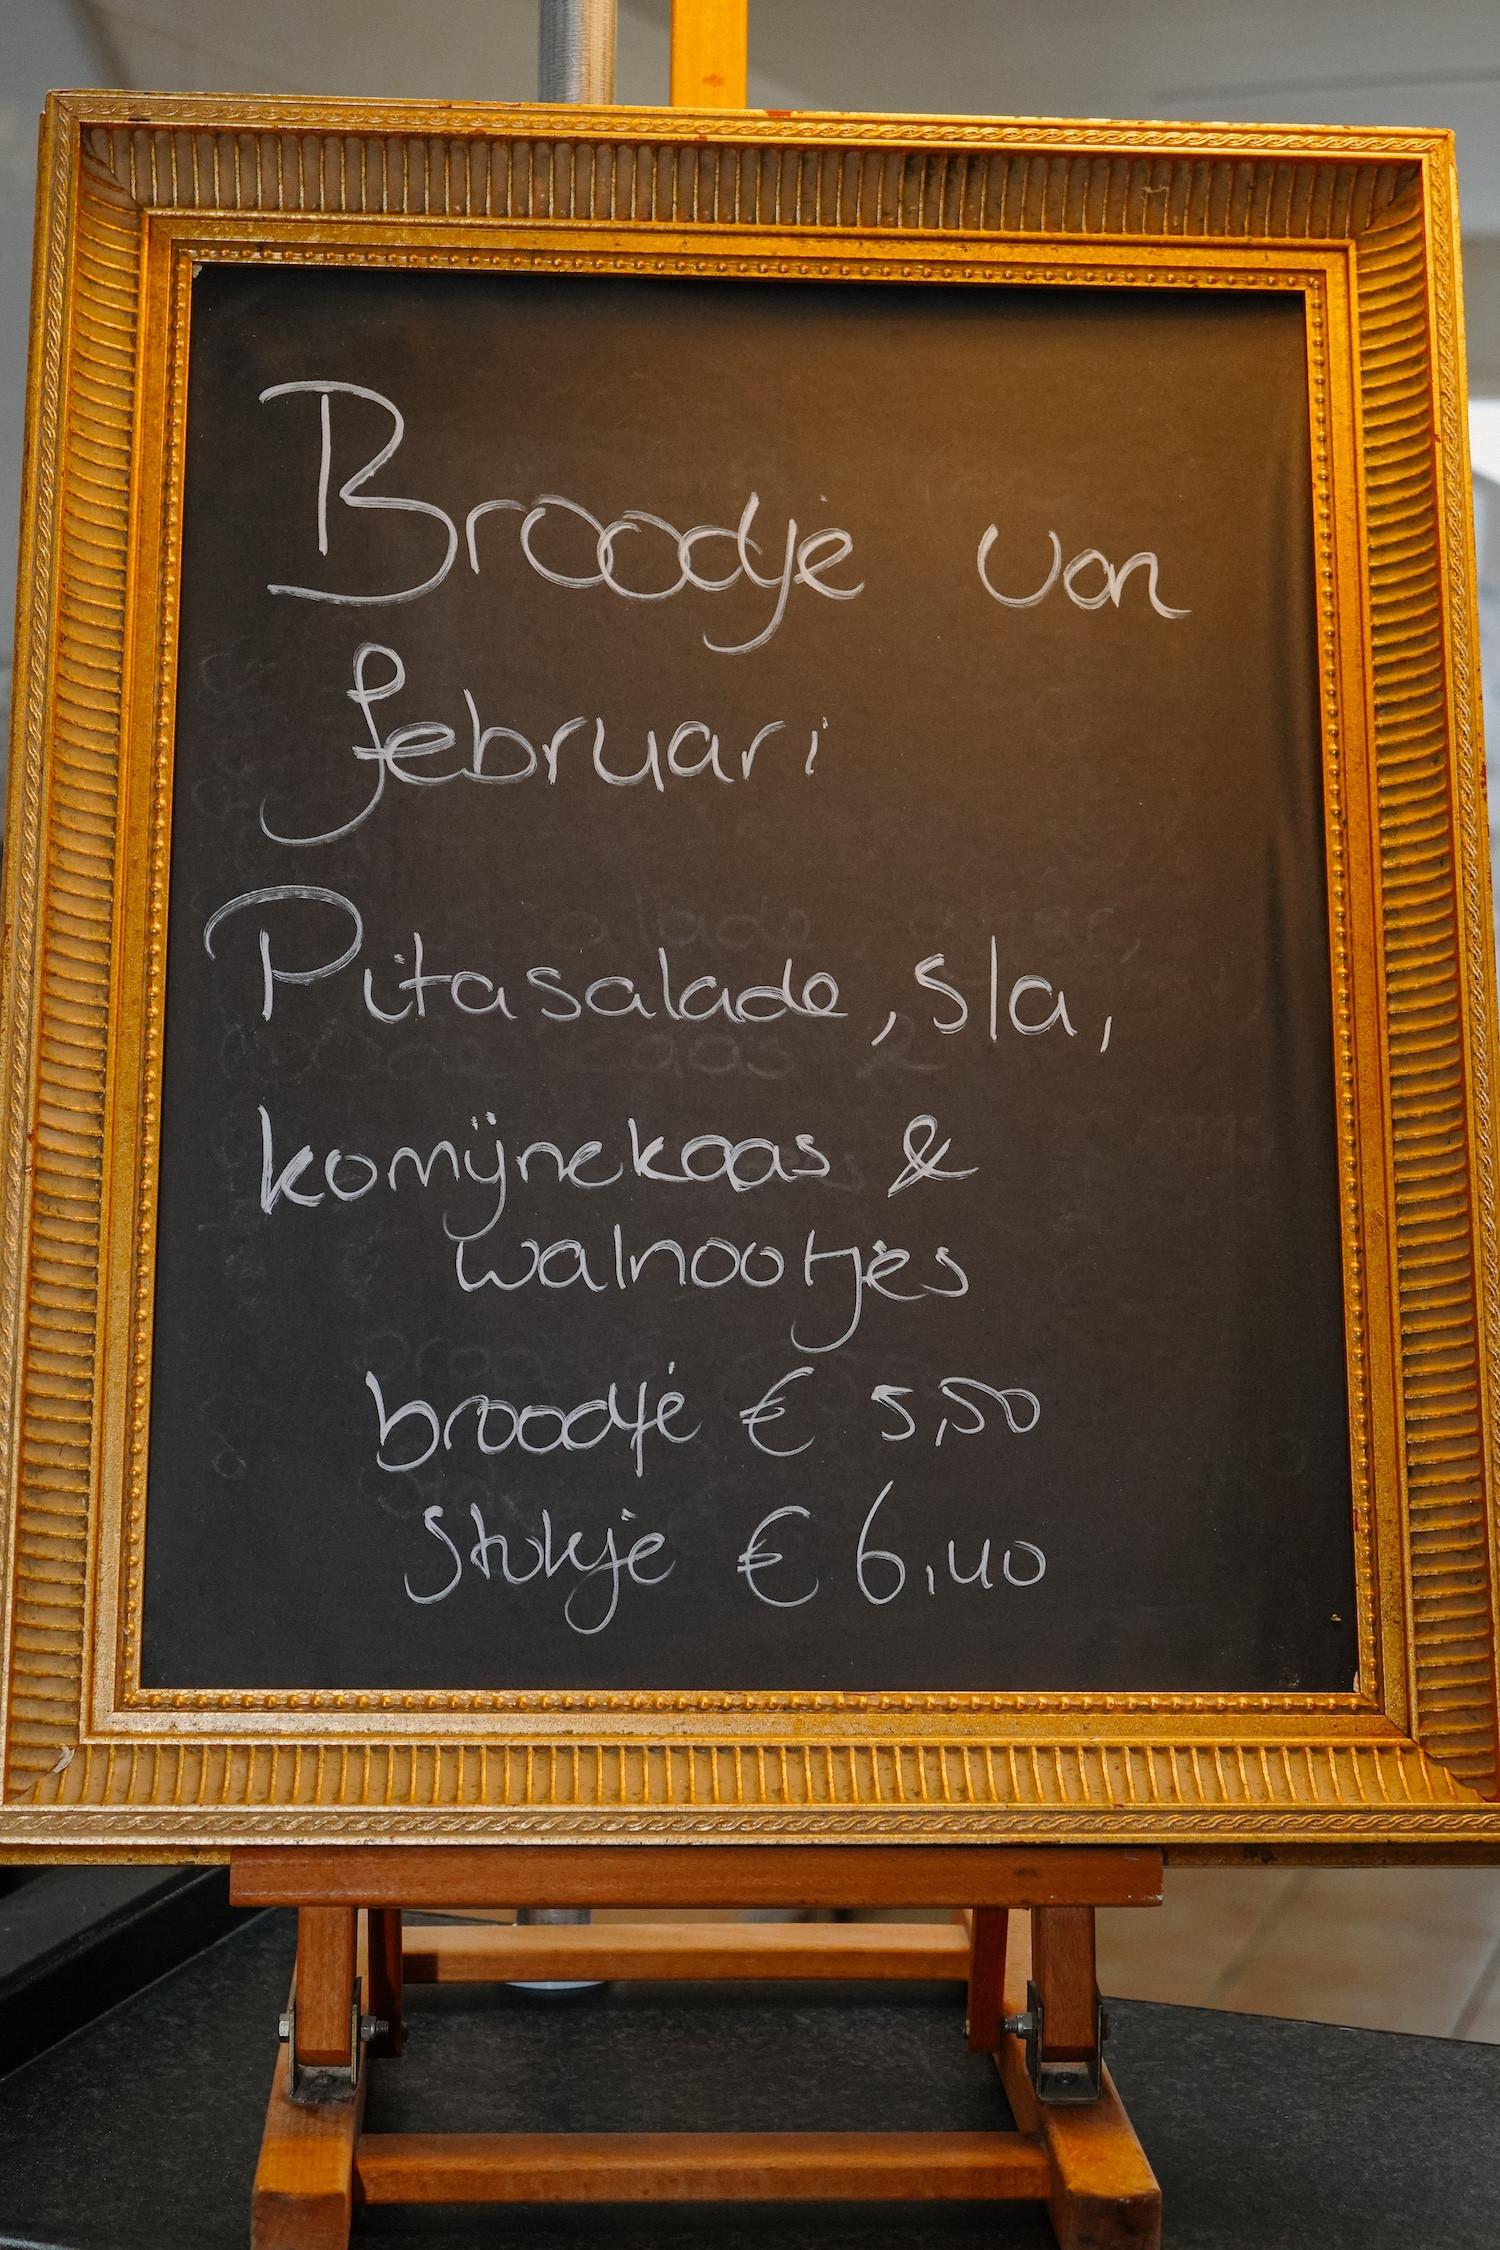 Broodje van
februari
Pitasalade, sla,
komijnekaas &
walnootjes
broodje € 5,50
Stokje € 6,40